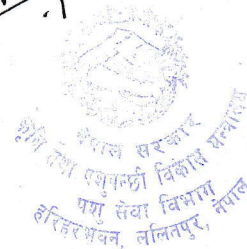 नेपाल सरकार
कृषि तथा पशुपन्छी विकास मन्त्रालय
पशु सेवा विभाग
हरिहरभवन, ललितपुर, नेपाल